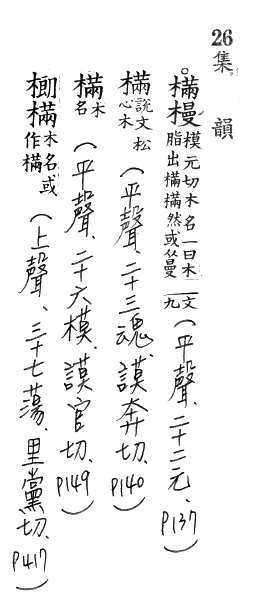 26 集韻
樠槾 模元切木名一曰木
脂出樠樠然或从曼 文九
(平聲、二十二元、P137)
樠 說文松心木 (平聲、二十三魂、謨奔切、P140)
樠 木名 (平聲、二十六模、謨官切、P149)
樠 木名或作樠 (上聲、三十七蕩、里黨切、P417)